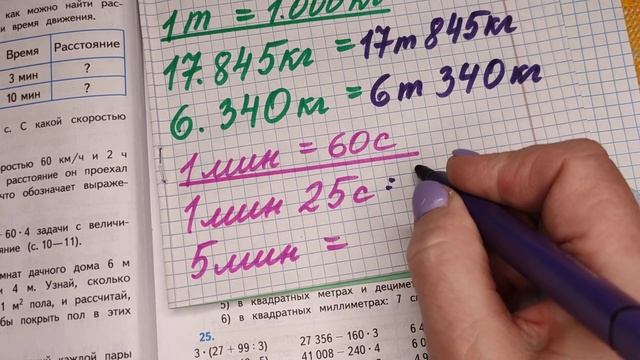 как можно найти рас-
и время движения.
Время Расстояние
3 мин ?
10 мин ?
с. С какой скоростью
ростью 60 км/ч и 2 ч
расстояние он проехал
что обозначает выраже-
60 · 4 задачи с величи-
яние (с. 10—11).
мнат дачного дома 6 м
и 4 м. Узнай, сколько
1 м² пола, и рассчитай,
бы покрыть пол в этих
каждой пары
1т = 1.000кг
17.845кг = 17т 845кг
6.340кг = 6т 340кг
1мин = 60с
1мин 25с =
5мин =
5) в квадратных метрах и дециме
6) в квадратных миллиметрах: 7 с
25.
3 · (27 + 99 : 3) 27 356 − 160 · 3 6 4
41 008 − 240 · 4 6 0